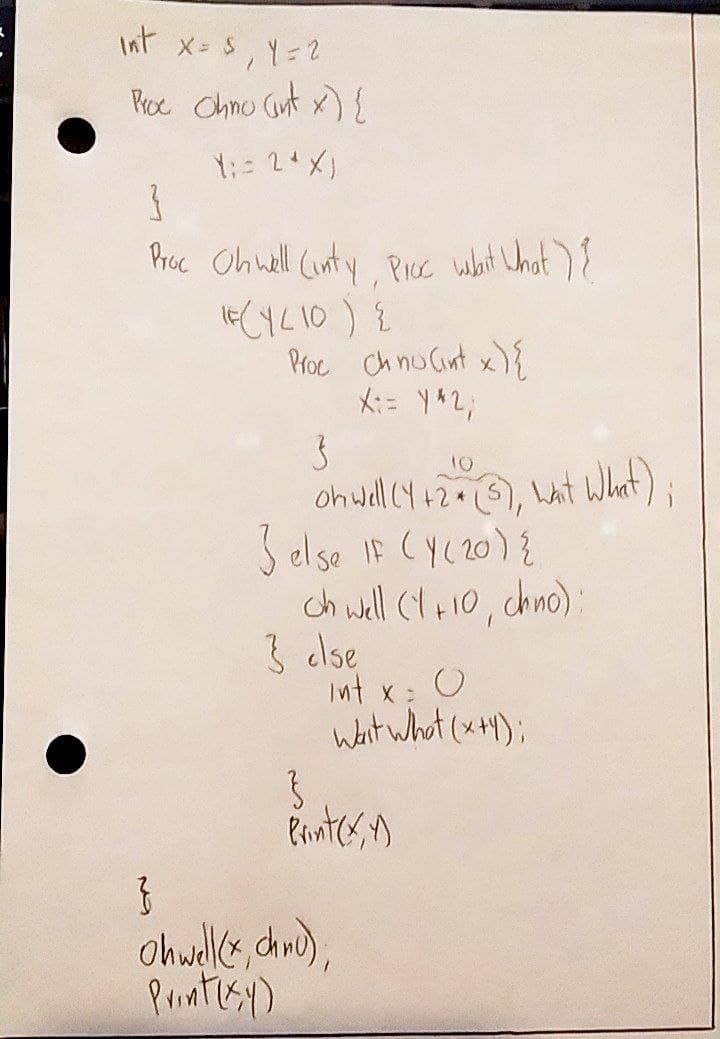 int x = 5, y = 2
Proc Ohno (int x) {
y := 2 * x;
}
Proc Ohwell (int y, Proc waitWhat) {
IF (y < 10) {
Proc ohno (int x) {
x := y * 2;
}
10
ohwell (y + 2 * (5), WaitWhat);
} else IF (y < 20) {
Ohwell (y + 10, ohno);
} else
int x = 0
WaitWhat (x + y);
}
Print (x, y)
}
Ohwell (x, ohno),
Print (x, y)